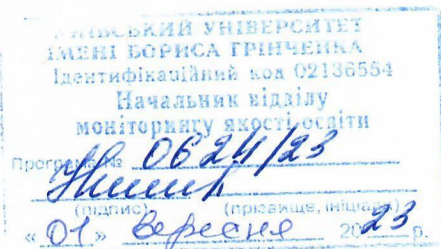 КИЇВСЬКИЙ УНІВЕРСИТЕТ
ІМЕНІ БОРИСА ГРІНЧЕНКА
Ідентифікаційний код 02136554
Начальник відділу
моніторингу якості освіти
Програма № 0624/23
(підпис) (прізвище, ініціали)
«01» вересня 2023 р.